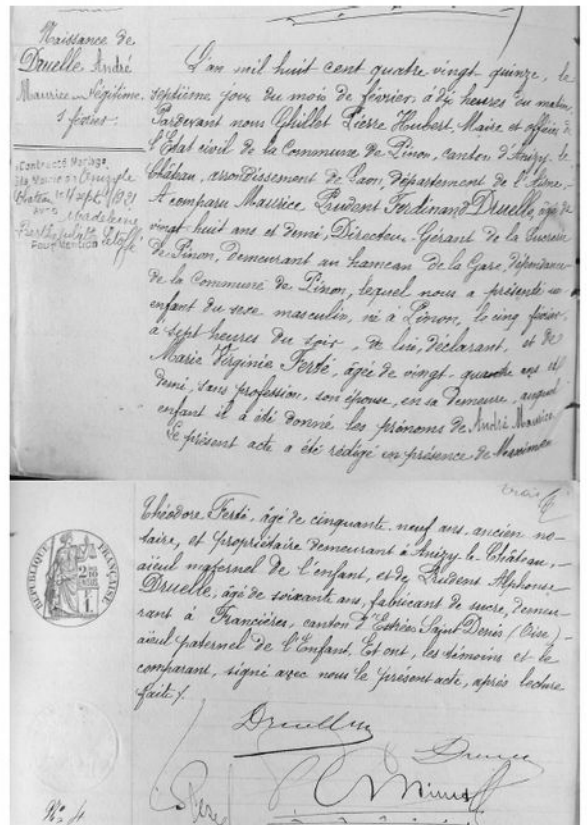 Naissance de
Druelle André
Maurice Légitime
5 février.
Contracté Mariage
Mairie de
Château le 14 sept 1921
avec Madeleine
Berthe Juliette Letoffé
Pour mention
L'an mil huit cent quatre vingt-quinze, le
septième jour du mois de février, à dix heures du matin,
Pardevant nous Ghillet Pierre Hubert, Maire et officier de
l'Etat civil de la Commune de Pinon, canton d'Anizy-le
Château, arrondissement de Laon, Département de l'Aisne,
A comparu Maurice Prudent Ferdinand Druelle, âgé de
vingt huit ans et demi, Directeur-Gérant de la Sucrerie
de Pinon, demeurant au hameau de la Gare, dépendance
de la Commune de Pinon, lequel nous a présenté un
enfant du sexe masculin, né à Pinon, le cinq février,
à sept heures du soir, de lui, déclarant, et de
Marie Virginie Ferté, âgée de vingt-quatre ans et
demi, sans profession, son épouse, en sa demeure, auquel
enfant il a été donné les prénoms de André Maurice.
Le présent acte a été rédigé en présence de
Théodore Ferté, âgé de cinquante-neuf ans, ancien no-
taire, et propriétaire demeurant à Anizy-le-Château,
aïeul maternel de l'enfant, et de Prudent Alphonse
Druelle, âgé de soixante ans, fabricant de sucre, demeu-
rant à Francières, canton d'Estrées Saint Denis (Oise)
aïeul paternel de l'Enfant. Et ont, les témoins et le
comparant, signé avec nous le présent acte, après lecture
faite.
RÉPUBLIQUE FRANÇAISE
Druelle